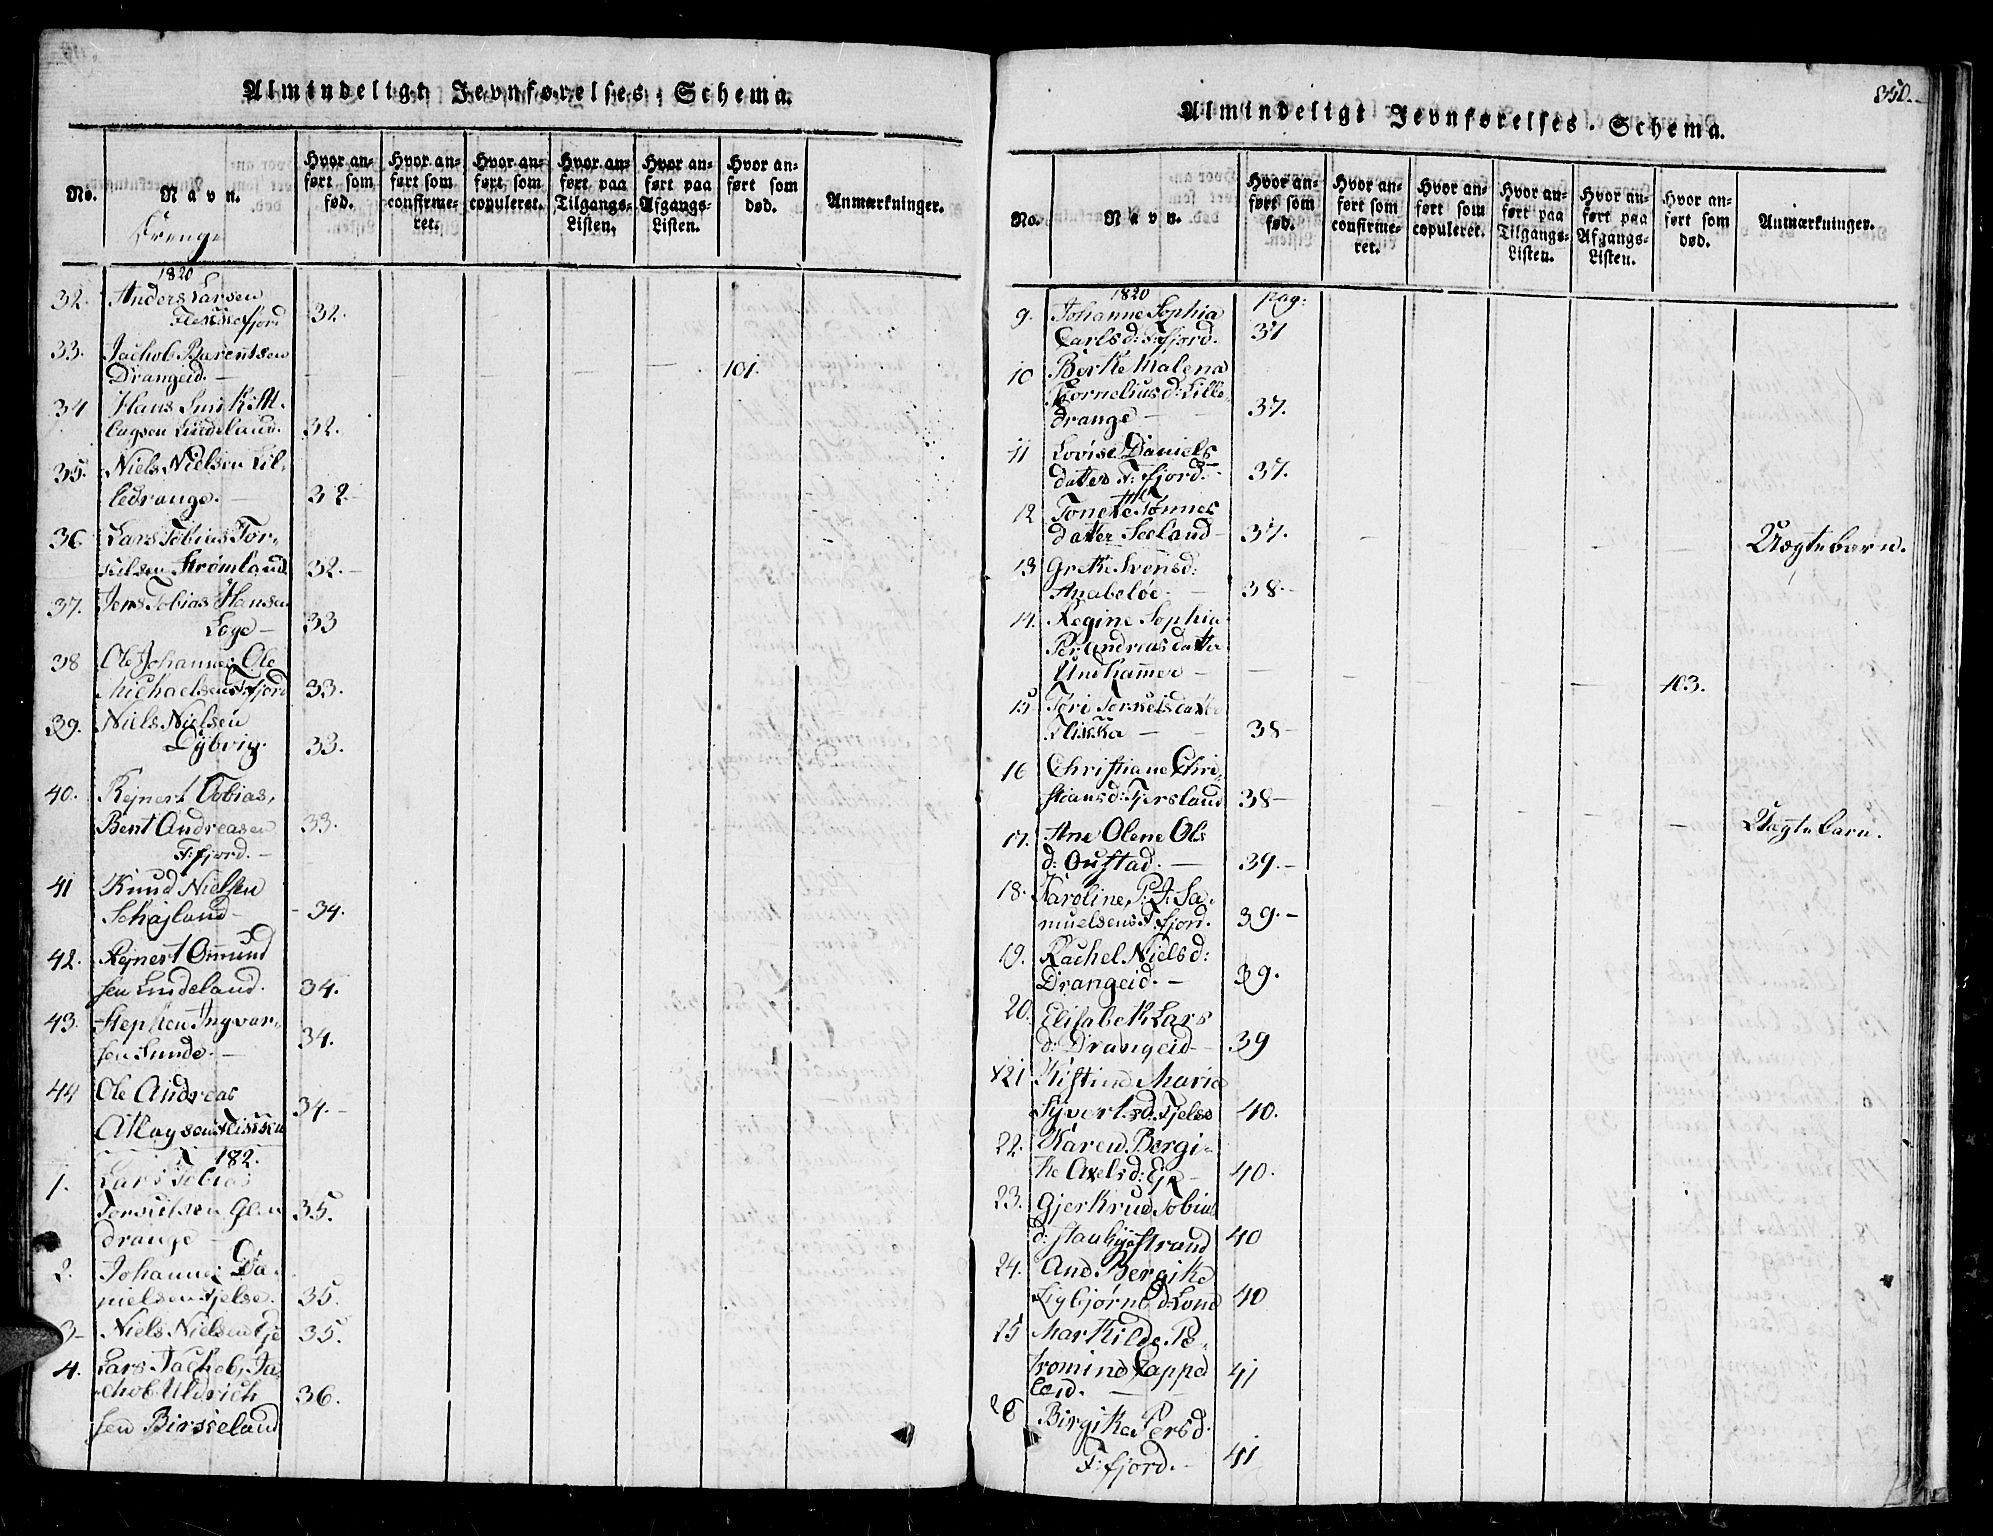 Almindeligt Jevnførelses-Schema.
No.
Navn.
Drenge
Hvor anført som fød.
Hvor anført som confirmeret.
Hvor anført som copuleret.
Hvor anført paa Tilgangs-Listen.
Hvor anført paa Afgangs-Listen.
Hvor anført som død.
Anmærkninger.
1820
32. Anders Larsen
Flekkefjord 32.
33. Jachob Barentsen
Drangeid. — 101.
34 Hans
Lindeland. 32.
35. Niels Nielsen Lil-
ledrange. — 32 -
36 Lars Tobias Tor-
kilsen Strømland 32. -
37. Jens Tobias Hansen
Loge — 33
38 Ole Johannes Ole
Michaelsen F:fjord 33.
39. Niels Nielsen
Dybvig. 33.
40. Rejnert Tobias,
Bent Andreasen 33.
F:fjord. —
41 Knud Nielsen
34.
42. Rejnert Ommund
sen Lindeland. 34.
43. Stephen Ingvar-
sen Sunde. — 34.
44 Ole Andreas
34. -
182.
1. Lars Tobias
Torkilsen
drange — 35.
2. Johannes Da-
nielsen Fjelse. 35.
3 - Niels Nielsen 35.
4. Lars Jachob, Ja-
chob Uldrich 36.
sen Birkeland
850.
Almindeligt Jevnførelses-Schema.
No.
Navn.
Hvor anført som fød.
Hvor anført som confirmeret.
Hvor anført som copuleret.
Hvor anført paa Tilgangs-Listen.
Hvor anført paa Afgangs-Listen.
Hvor anført som død.
Anmærkninger.
1820 pag:
9. Johanne Sophia
Carlsd: F:fjord. 37
10 Berthe Malena
Corneliusd: Lille-
drange — 37.
11 Lovise Daniels
datter F:fjord. - 37.
12 Tonette Tønnes
datter Seeland - 37. Uægte barn.
13 Grethe Svensd:
Anabeløe. — 38. -
14. Regine Sophia
Per Andreas datter
Undhammer — 103.
15 Tori Torkelsdatter
Flikka — 38 -
16 Christiane Chri-
stiansd: Fjersland 38 — Uægte barn.
17. Ane Olene Ols
d: Oustad. — 39. -
18. Karoline, P: F: Sa-
muelsens F:fjord. 39. -
19. Rachel Niels d:
Drangeid. — 39.
20. Elisabeth Lars
d: Drangeid — 39
21 Maria
Syvertsd: Fjelse 40.
22. Karen Bergi-
the Axelsd: 40.
23. Gjerthrud Tobias
d: strand 40
24. Ane Bergithe
40
25 Marthilde Pe-
41
land. —
26 Birgithe Persd.
F:fjord. — 41